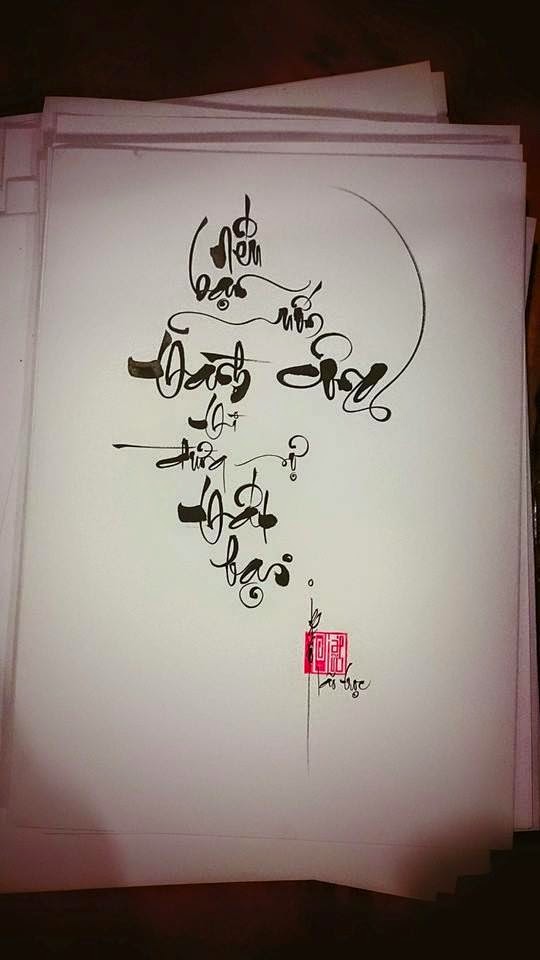 Nếu
bạn
muốn
thành công
thì
đừng sợ
thất
bại